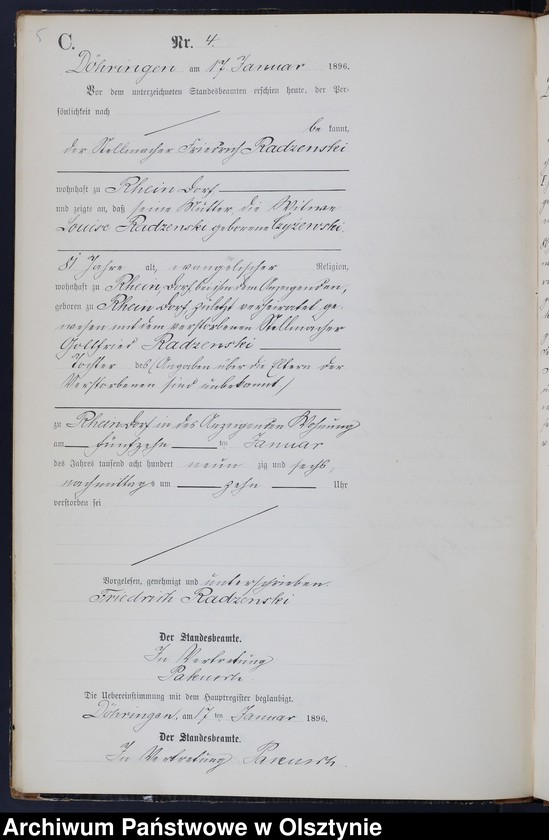 5
C.
Nr. 4.
Döhringen am 17 Januar 1896.
Vor dem unterzeichneten Standesbeamten erschien heute, der Per-
sönlichkeit nach
be kannt,
der Stellmacher Friedrich Radzenski
wohnhaft zu Rhein Dorf
und zeigte an, daß seine Mutter, die Witwe
Louise Radzenski geborene Czyzewski
81 Jahre alt, evangelischer Religion,
wohnhaft zu Rhein, Dorf bei dem Anzeigenden,
geboren zu Rhein Dorf, zuletzt verheiratet ge-
wesen mit dem verstorbenen Stellmacher
Gottfried Radzenski
Tochter des (Angaben über die Eltern der
Verstorbenen sind unbekannt)
zu Rhein Dorf in des Anzeigenden Wohnung
am fünfzehn ten Januar
des Jahres tausend acht hundert neun zig und sechs,
nachmittags um zehn Uhr
verstorben sei
Vorgelesen, genehmigt und unterschrieben.
Friedrich Radzenski
Der Standesbeamte.
In Vertretung
Die Uebereinstimmung mit dem Hauptregister beglaubigt.
Döhringen, am 17 ten Januar 1896.
Der Standesbeamte.
In Vertretung
Archiwum Państwowe w Olsztynie